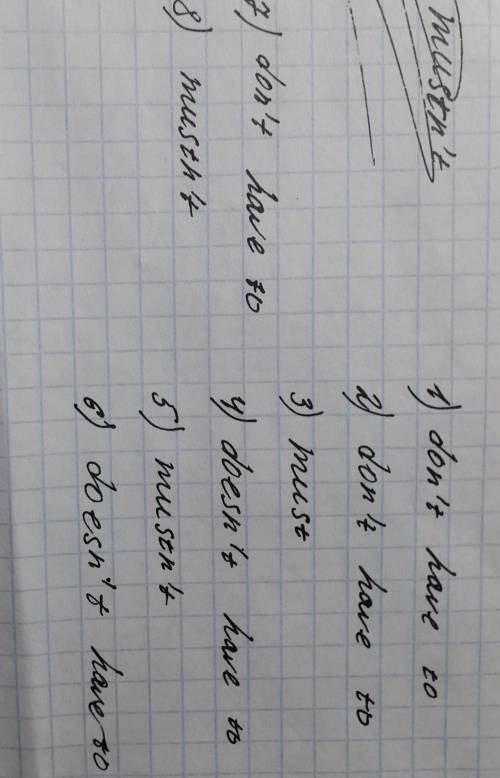 mustn't
1) don't have to
2) don't have to
3) must
4) doesn't have to
5) mustn't
6) doesn't have to
7) don't have to
8) mustn't